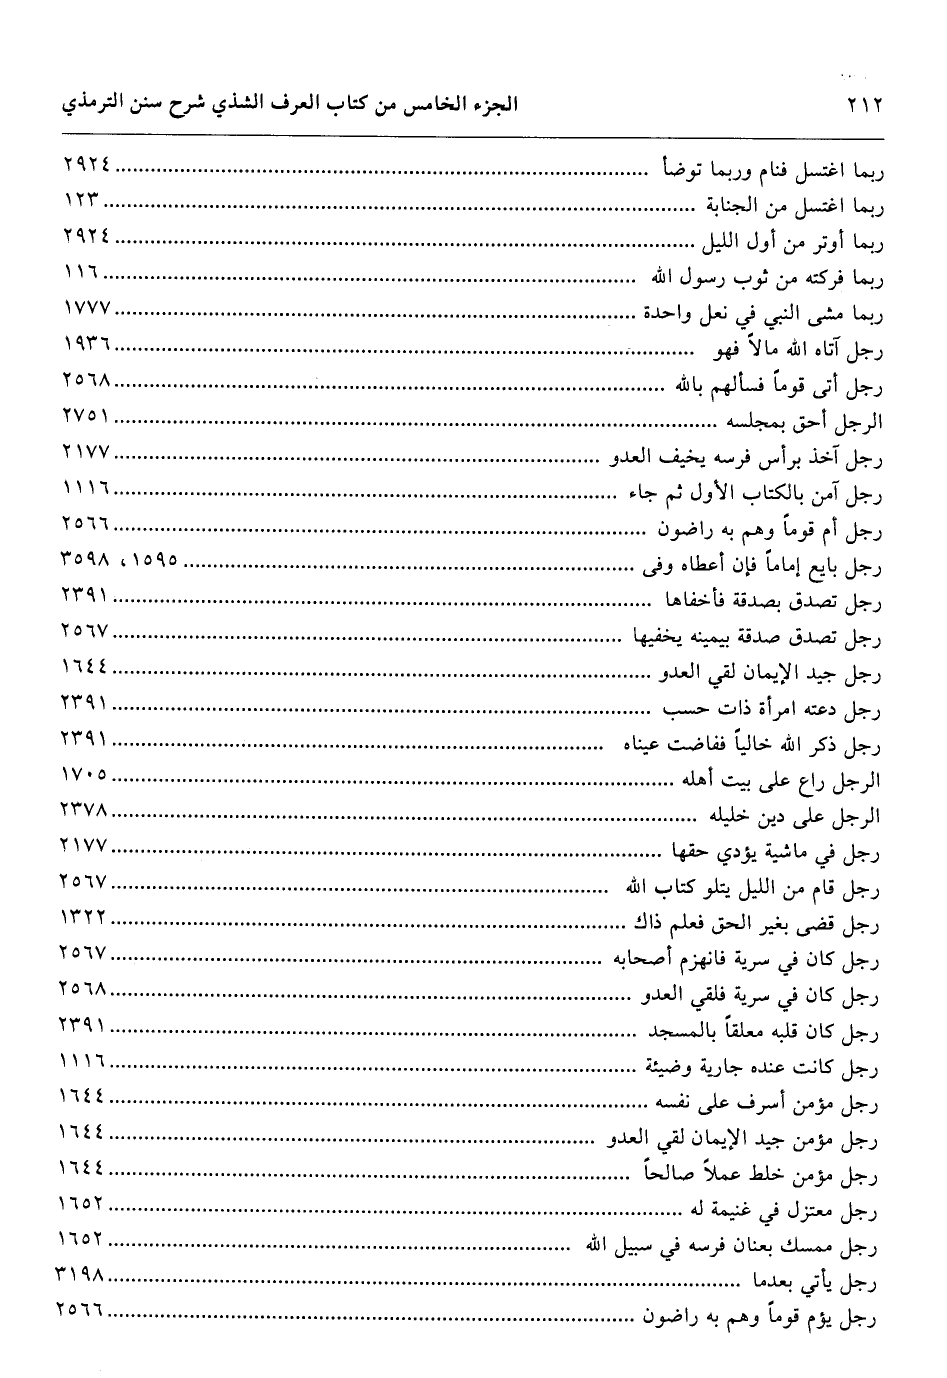 ٢١٢ الجزء الخامس من كتاب العرف الشذي شرح سنن الترمذي
ربما اغتسل فنام وربما توضأ ........ ٢٩٢٤
ربما اغتسل من الجنابة ........ ١٢٣
ربما أوتر من أول الليل ........ ٢٩٢٤
ربما فركته من ثوب رسول الله ........ ١١٦
ربما مشى النبي في نعل واحدة ........ ١٧٧٧
رجل آتاه الله مالاً فهو ........ ١٩٣٦
رجل أتى قوماً فسألهم بالله ........ ٢٥٦٨
الرجل أحق بمجلسه ........ ٢٧٥١
رجل آخذ برأس فرسه يخيف العدو ........ ٢١٧٧
رجل آمن بالكتاب الأول ثم جاء ........ ١١١٦
رجل أم قوماً وهم به راضون ........ ٢٥٦٦
رجل بايع إماماً فإن أعطاه وفى ........ ١٥٩٥، ٣٥٩٨
رجل تصدق بصدقة فأخفاها ........ ٢٣٩١
رجل تصدق صدقة بيمينه يخفيها ........ ٢٥٦٧
رجل جيد الإيمان لقي العدو ........ ١٦٤٤
رجل دعته امرأة ذات حسب ........ ٢٣٩١
رجل ذكر الله خالياً ففاضت عيناه ........ ٢٣٩١
الرجل راع على بيت أهله ........ ١٧٠٥
الرجل على دين خليله ........ ٢٣٧٨
رجل في ماشية يؤدي حقها ........ ٢١٧٧
رجل قام من الليل يتلو كتاب الله ........ ٢٥٦٧
رجل قضى بغير الحق فعلم ذاك ........ ١٣٢٢
رجل كان في سرية فانهزم أصحابه ........ ٢٥٦٧
رجل كان في سرية فلقي العدو ........ ٢٥٦٨
رجل كان قلبه معلقاً بالمسجد ........ ٢٣٩١
رجل كانت عنده جارية وضيئة ........ ١١١٦
رجل مؤمن أسرف على نفسه ........ ١٦٤٤
رجل مؤمن جيد الإيمان لقي العدو ........ ١٦٤٤
رجل مؤمن خلط عملاً صالحاً ........ ١٦٤٤
رجل معتزل في غنيمة له ........ ١٦٥٢
رجل ممسك بعنان فرسه في سبيل الله ........ ١٦٥٢
رجل يأتي بعدما ........ ٣١٩٨
رجل يؤم قوماً وهم به راضون ........ ٢٥٦٦